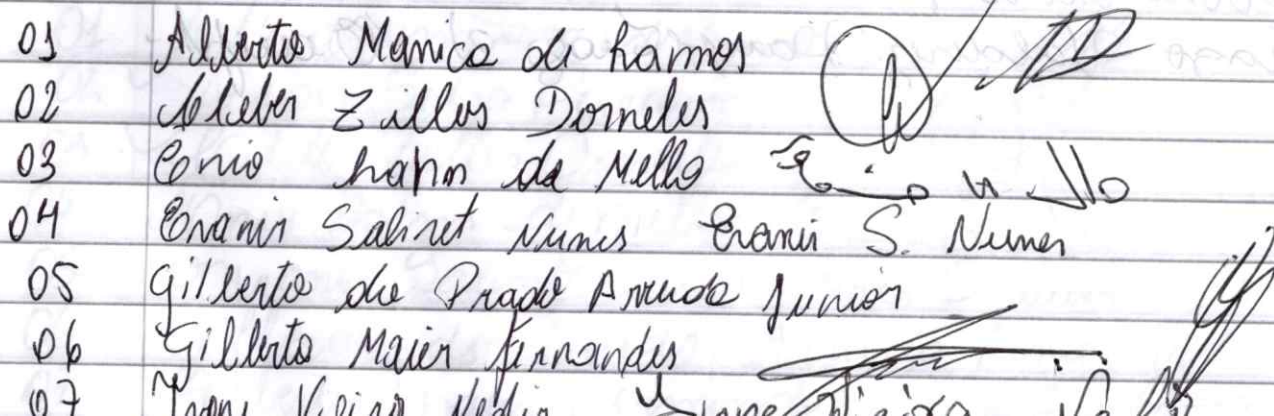 01 Alberto Manica de Ramos
02 Cleber Zillos Dorneles
03 Enio Hahn de Mello
04 Eranir Salinet Nunes Eranir S. Nunes
05 Gilberto do Prado Arruda Junior
06 Gilberto Maier Fernandes
07 Vieira